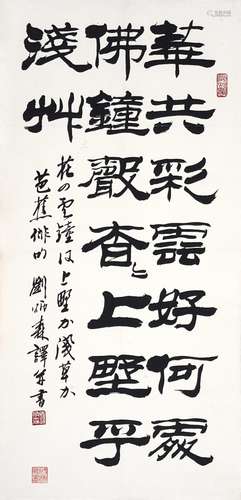 華共彩雲好何處
佛鐘聲杳々上野乎
淺艸
花の雲鐘は上野か淺草か
芭蕉俳句 劉炳森譯並書